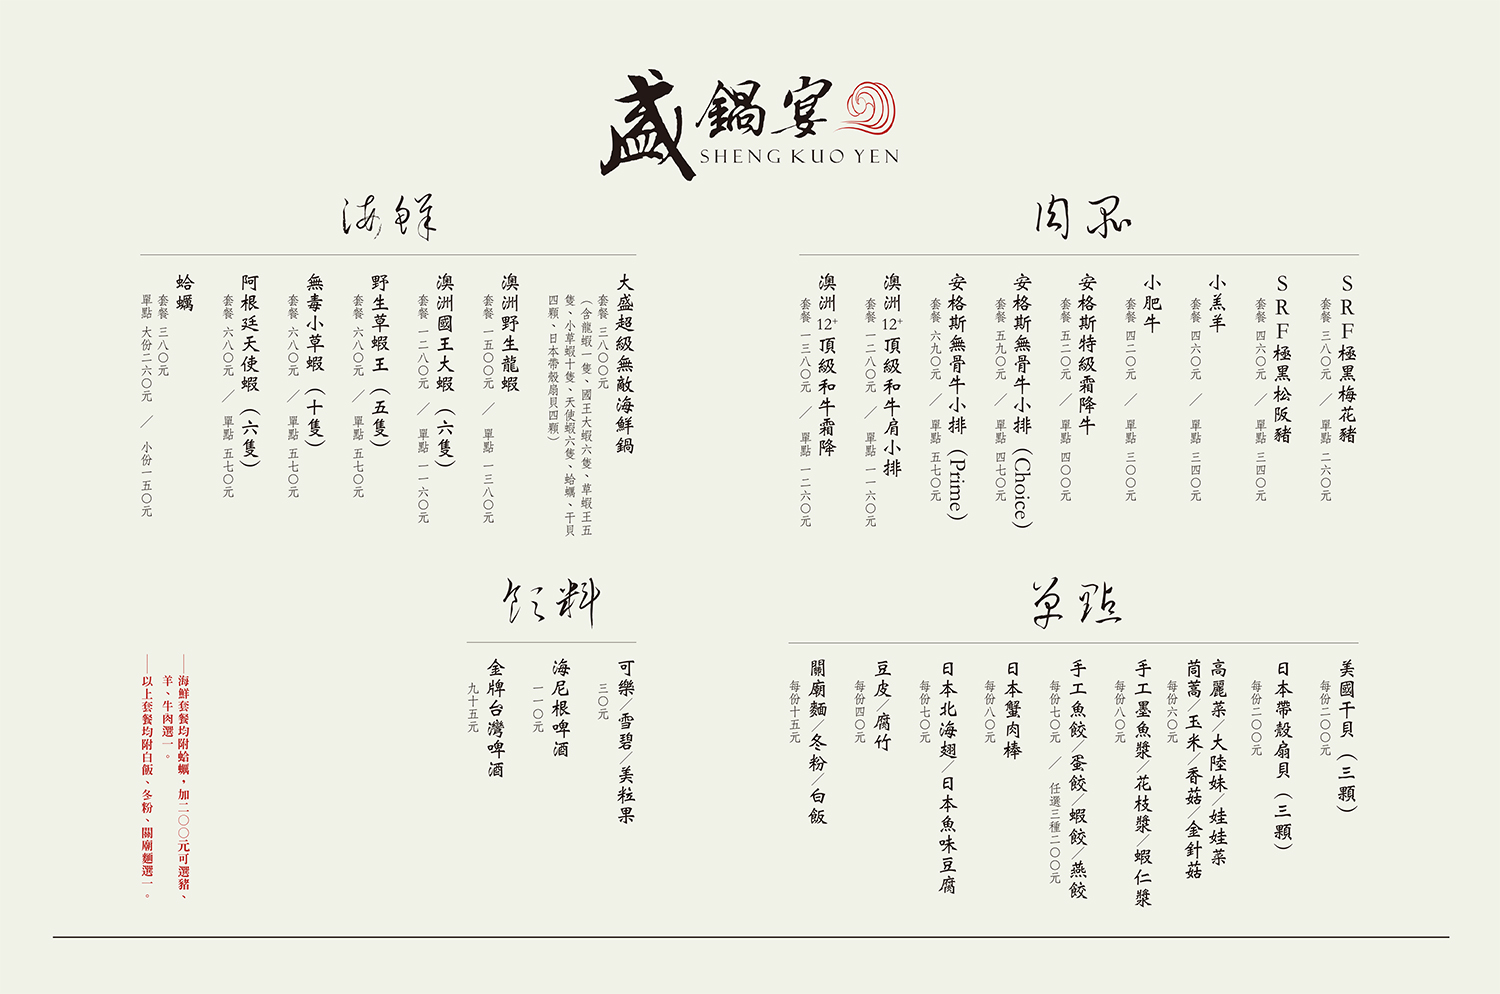 盛鍋宴
SHENG KUO YEN
肉品
SRF極黑梅花豬
套餐 三八〇元 ／ 單點 二六〇元
SRF極黑松阪豬
套餐 四六〇元 ／ 單點 三四〇元
小羔羊
套餐 四六〇元 ／ 單點 三四〇元
小肥牛
套餐 四二〇元 ／ 單點 三〇〇元
安格斯特級霜降牛
套餐 五二〇元 ／ 單點 四〇〇元
安格斯無骨牛小排 (Choice)
套餐 五九〇元 ／ 單點 四七〇元
安格斯無骨牛小排 (Prime)
套餐 六九〇元 ／ 單點 五七〇元
澳洲12+頂級和牛肩小排
套餐 一二八〇元 ／ 單點 一一六〇元
澳洲12+頂級和牛霜降
套餐 一三八〇元 ／ 單點 一二六〇元
海鮮
大盛超級無敵海鮮鍋
套餐 三八〇〇元
(含龍蝦一隻、國王大蝦六隻、草蝦王五
隻、小草蝦十隻、天使蝦六隻、蛤蠣、干貝
四顆、日本帶殼扇貝四顆)
澳洲野生龍蝦
套餐 一五〇〇元 ／ 單點 一三八〇元
澳洲國王大蝦 (六隻)
套餐 一二八〇元 ／ 單點 一一六〇元
野生草蝦王 (五隻)
套餐 六八〇元 ／ 單點 五七〇元
無毒小草蝦 (十隻)
套餐 六八〇元 ／ 單點 五七〇元
阿根廷天使蝦 (六隻)
套餐 六八〇元 ／ 單點 五七〇元
蛤蠣
套餐 三八〇元
單點 大份二六〇元 ／ 小份一五〇元
單點
美國干貝 (三顆)
每份二〇〇元
日本帶殼扇貝 (三顆)
每份二〇〇元
高麗菜／大陸妹／娃娃菜
茼蒿／玉米／香菇／金針菇
每份六〇元
手工墨魚漿／花枝漿／蝦仁漿
每份八〇元
手工魚餃／蛋餃／蝦餃／燕餃
每份七〇元 ／ 任選三種二〇〇元
日本蟹肉棒
每份八〇元
日本北海翅／日本魚味豆腐
每份七〇元
豆皮／腐竹
每份四〇元
關廟麵／冬粉／白飯
每份十五元
飲料
可樂／雪碧／美粒果
三〇元
海尼根啤酒
一一〇元
金牌台灣啤酒
九十五元
──海鮮套餐均附蛤蠣，加二〇〇元可選豬、
羊、牛肉選一。
──以上套餐均附白飯、冬粉、關廟麵選一。